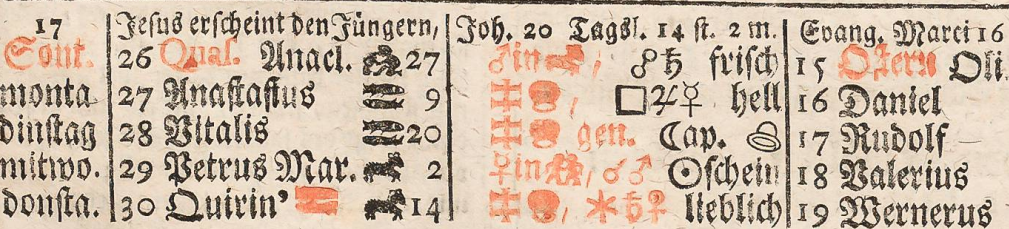 17 Jesus erscheint den Jüngern, Joh. 20 Tagsl. 14 st. 2 m. Evang. Marci 16
Sont. 26 Quas. Anacl. 27 ♂in ; ☍♄ frisch 15 Ostern Oli
monta 27 Anastasius 9 , □♃☿ hell 16 Daniel
dinstag 28 Vitalis 20 gen. ☾ap. 17 Rudolf
mitwo. 29 Petrus Mar. 2 ☿in , ☌♂ ☉schein 18 Valerius
donsta. 30 Quirin' 14 , ✶♄♀ lieblich 19 Wernerus